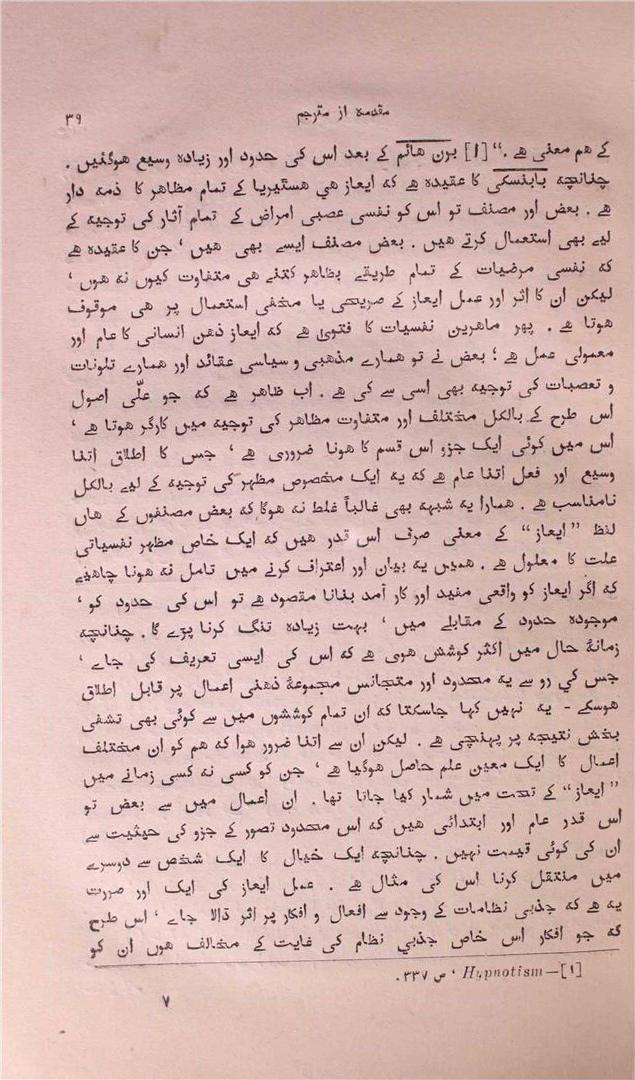 مقدمه از مترجم ۳۹
کے هم معنی هے ." [۱] برن هائم کے بعد اس کی حدود اور زیاده وسیع هوگئیں .
چنانچه بابنسکی کا عقیده هے که ایعاز هی هسٹیریا کے تمام مظاهر کا ذمه دار
هے . بعض اور مصنف تو اس کو نفسی عصبی امراض کے تمام آثار کی توجیه کے
لیے بھی استعمال کرتے هیں . بعض مصنف ایسے بھی هیں ‘ جن کا عقیده هے
که نفسی مرضیات کے تمام طریقے بظاهر کتنے هی متفاوت کیوں نه هوں ‘
لیکن ان کا اثر اور عمل ایعاز کے صریحی یا مخفی استعمال پر هی موقوف
هوتا هے . پھر ماهرین نفسیات کا فتویٰ هے که ایعاز ذهن انسانی کا عام اور
معمولی عمل هے ؛ بعض نے تو همارے مذهبی و سیاسی عقائد اور همارے تلونات
و تعصبات کی توجیه بھی اسی سے کی هے . اب ظاهر هے که جو علّی اصول
اس طرح کے بالکل مختلف اور متفاوت مظاهر کی توجیه میں کارگر هوتا هے ‘
اس میں کوئی ایک جزو اس قسم کا هونا ضروری هے ‘ جس کا اطلاق اتنا
وسیع اور فعل اتنا عام هے که یه ایک مخصوص مظهر کی توجیه کے لیے بالکل
نامناسب هے . همارا یه شبهه بھی غالباً غلط نه هوگا که بعض مصنفوں کے هاں
لفظ ”ایعاز“ کے معنی صرف اس قدر هیں که ایک خاص مظهر نفسیاتی
علت کا معلول هے . همیں یه بیان اور اعتراف کرنے میں تامل نه هونا چاهیے
که اگر ایعاز کو واقعی مفید اور کار آمد بنانا مقصود هے تو اس کی حدود کو ‘
موجوده حدود کے مقابلے میں ‘ بهت زیاده تنگ کرنا پڑے گا . چنانچه
زمانهٔ حال میں اکثر کوشش هوی هے که اس کی ایسی تعریف کی جاے ‘
جس کی رو سے یه محدود اور متجانس مجموعهٔ ذهنی اعمال پر قابل اطلاق
هوسکے - یه نهیں کها جاسکتا که ان تمام کوششوں میں سے کوئی بھی تشفی
بخش نتیجه پر پهنچی هے . لیکن ان سے اتنا ضرور هوا که هم کو ان مختلف
اعمال کا ایک معین علم حاصل هوگیا هے ‘ جن کو کسی نه کسی زمانے میں
”ایعاز“ کے تحت میں شمار کیا جاتا تھا . ان اعمال میں سے بعض تو
اس قدر عام اور ابتدائی هیں که اس محدود تصور کے جزو کی حیثیت سے
ان کی کوئی قیمت نهیں . چنانچه ایک خیال کا ایک شخص سے دوسرے
میں منتقل کرنا اس کی مثال هے . عمل ایعاز کی ایک اور صورت
یه هے که جذبی نظامات کے وجود سے افعال و افکار پر اثر ڈالا جاے ‘ اس طرح
که جو افکار اس خاص جذبی نظام کی غایت کے مخالف هوں ان کو
[۱]— Hypnotism ‘ ص ۳۳۷.
۷